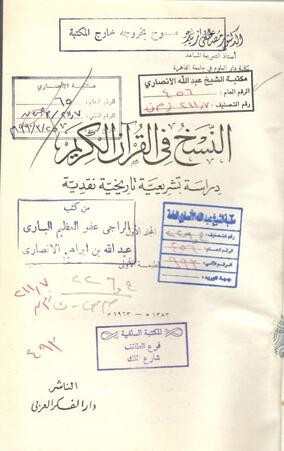 الدكتور مصطفى زيد
مسموح بخروجه خارج المكتبة
أستاذ الشريعة المساعد
بكلية دار العلوم في جامعة القاهرة
مكتبة الشيخ عبد الله الأنصاري
الرقم العام :
رقم التصنيف :
مكتبة الأنصاري
الرقم العام :
النسخ في القرآن الكريم
دراسة تشريعية تاريخية نقدية
من كتب
الراجي عفو العظيم الباري
عبد الله بن ابراهيم الانصاري
المجلد الأول
الطبعة الأولى
مكتبة الشيخ عبد الله الأنصاري
رقم التصنيف
الرقم العام
١٣٨٣ هـ - ١٩٦٣ م
المكتبة السلفية
فرع الطائف
شارع الملك
٤٩٢
الناشر
دار الفكر العربي